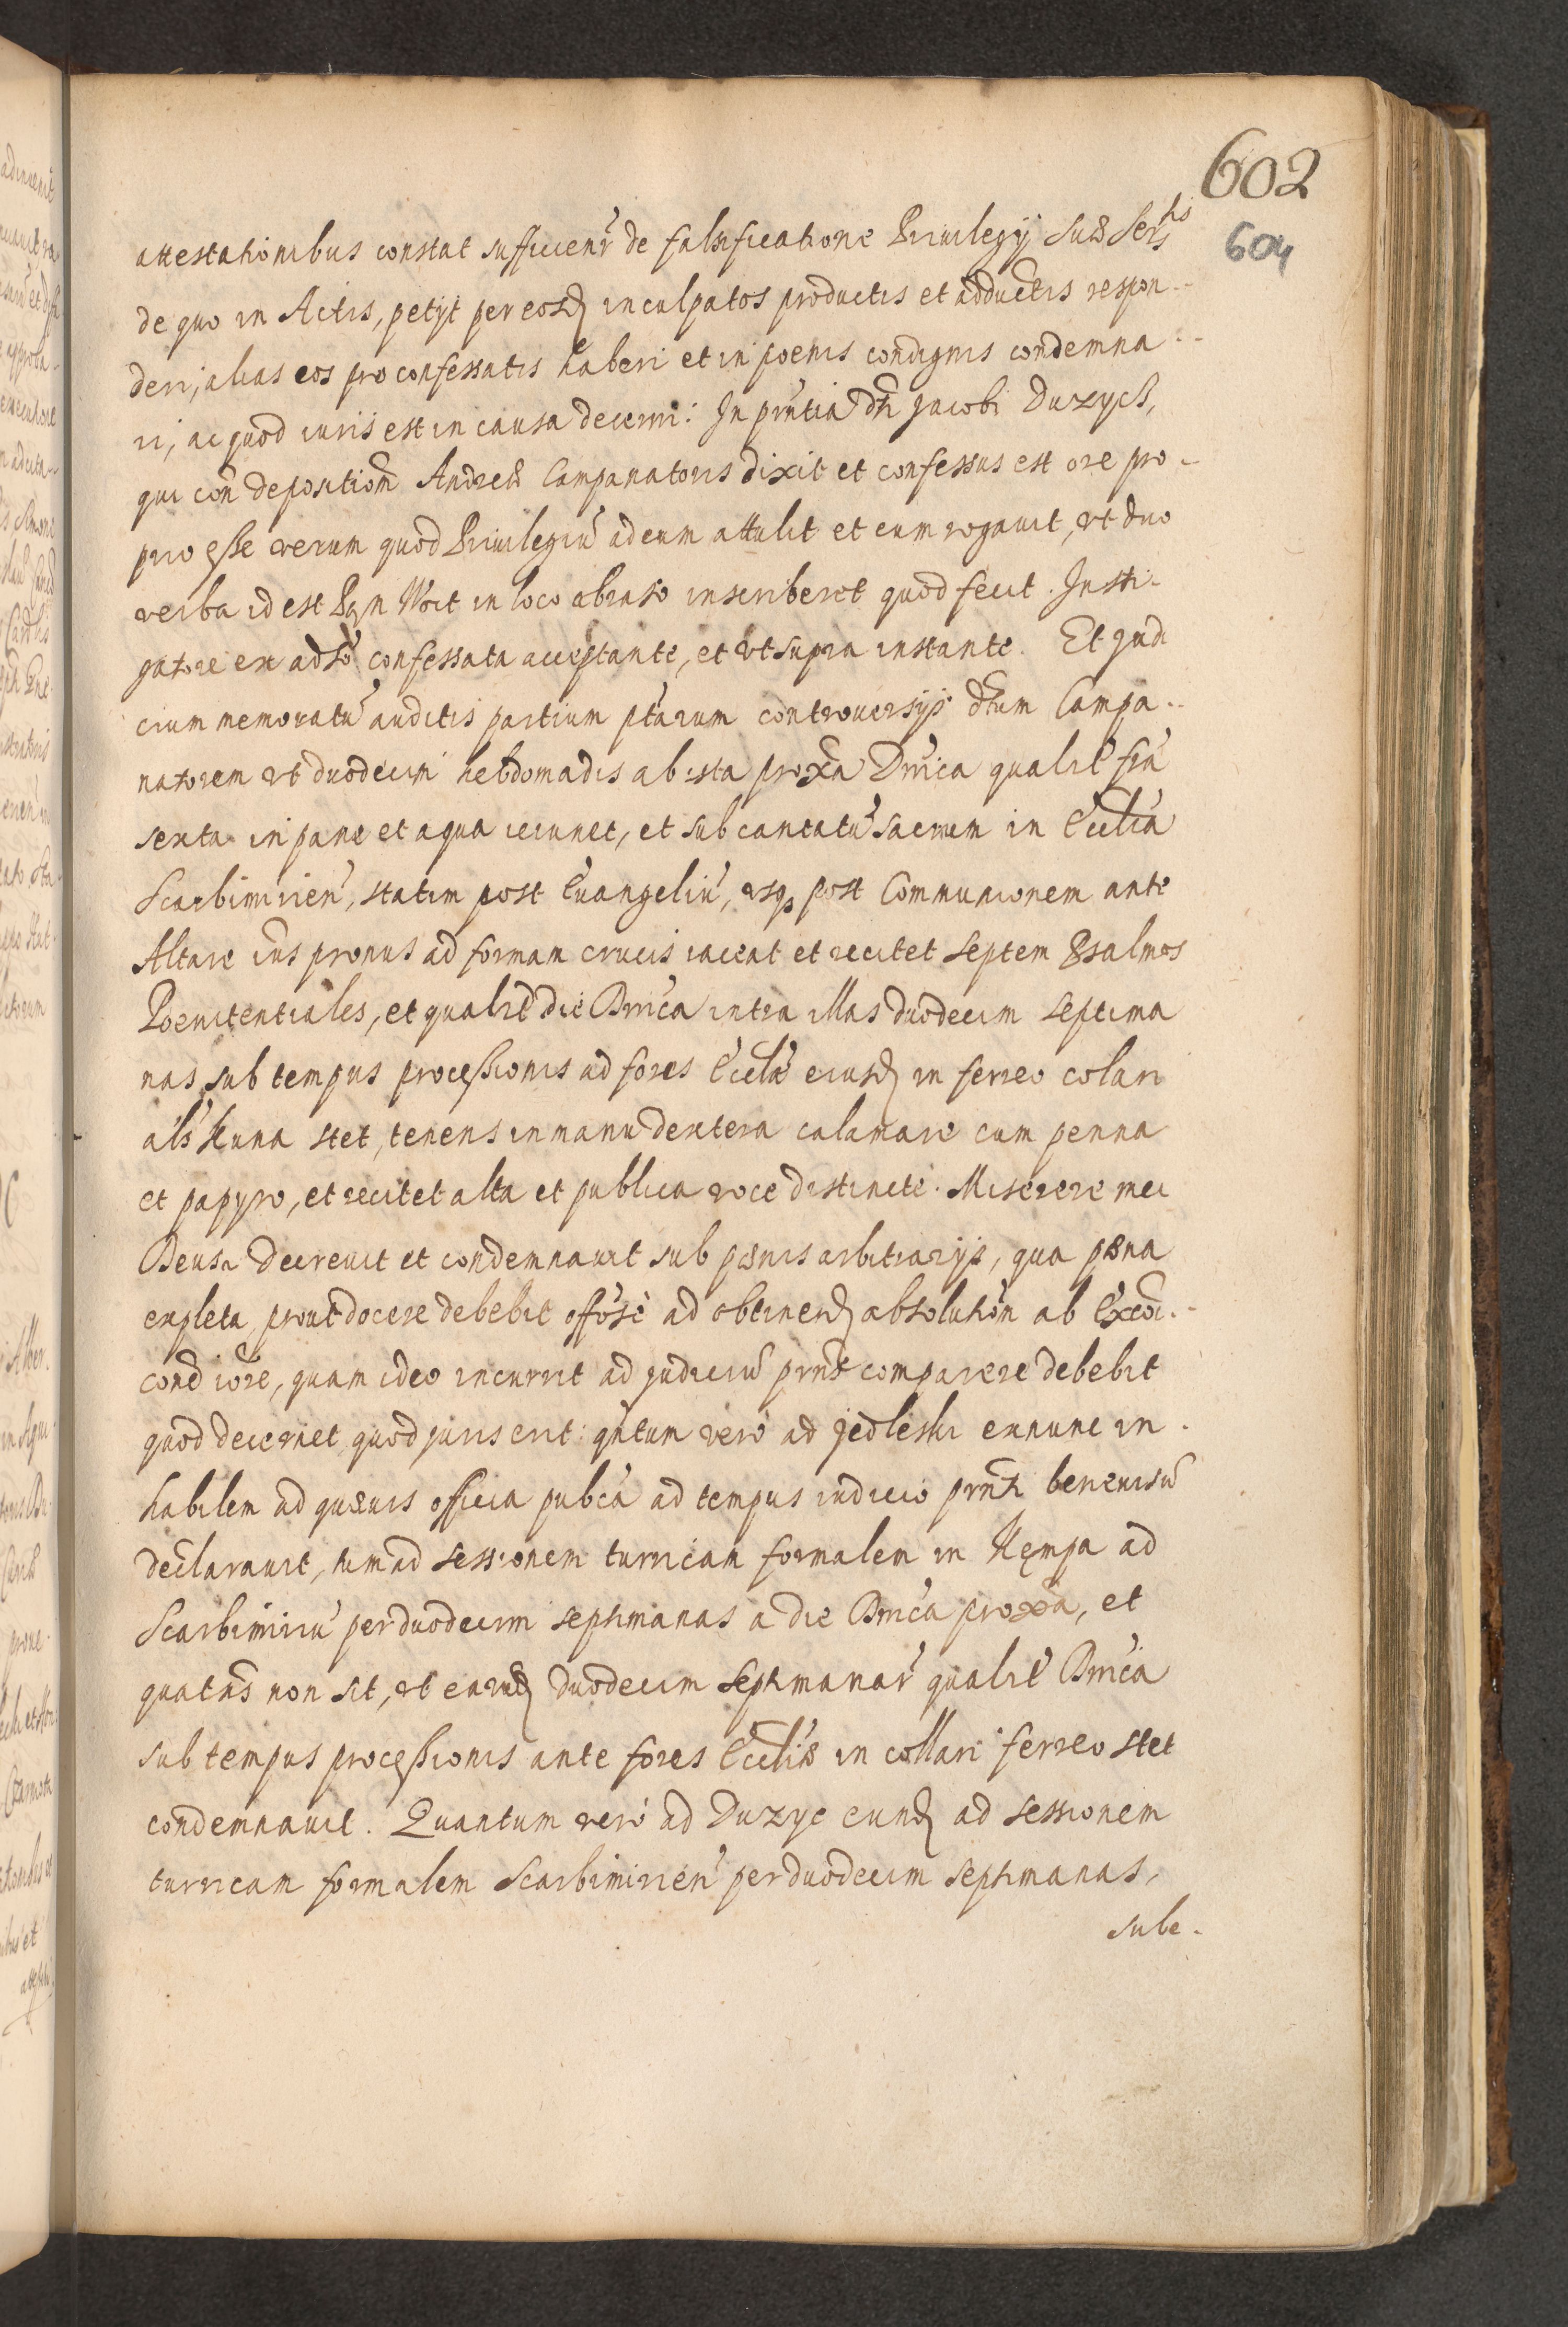 602
604
attestationibus constat sufficienr̃ de falsificatione Priuilegij Suæ Sertis
de quo in Actis, petijt per eosd inculpatos productis et adductis respon-
deri, alias eos pro confessatis haberi et in poenis condignis condemna-
ri, ac quod iuris est in causa decerni: In pñtia dti Jacobi Duzych,
qui coñ depositioñ Andreæ Campanatoris dixit et confessus est ore pro-
prio esse verum quod Priuilegiũ ad eum attulit et eum rogauit, vt duo
verba id est Pan Woit in loco abraso inscriberet quod fecit. Insti-
gatore ex adsõ confessata acceptante, et vt supra instante. Et Judi
cium memoratũ auditis partium ptarum controuersijs dtum Campa-
natorem vt duodecim hebdomadis ab ista proxa Dnica qualit̃ fia
sexta in pane et aqua ieiunet, et sub cantatũ sacrum in Eccliã
Scarbimirieñ, statim post Euangeliũ, vsq post Communionem ante
Altare ius pronus ad formam crucis iaceat et recitet septem Psalmos
Poenitentiales, et qualit̃ die Dnica intra illas duodecim septima
nas sub tempus processionis ad fores Eccla eiusd in ferreo colari
als̃ kuna stet, tenens in manu dextera calamare cum penna
et papyro, et recitet alta et publica voce distincte. Miserere mei
Deus. decreuit et condemnauit sub pænis arbitrarijs, qua pæna
expleta, prout docere debebit offose ad obtinend absolutioñ ab Excoi-
coñe iore, quam ideo incurrit ad judiciũ prns comparere debebit
quod decernet, quod juris erit: qntum vero ad Jedleski exnunc in-
habilem ad quæuis officia pubca ad tempus iudicio prnti beneuisũ
declarauit, tum ad sessionem turricam formalem in Kęmpa ad
Scarbimiriũ per duodecim septimanas a die Dnica proxa, et
quatns non sit, vt earund duodecim septimanar̃ qualit̃ Dnica
sub tempus processionis ante fores Eccliæ in collari ferreo stet
condemnauit. Quantum vero ad Duzyc eund ad sessionem
turricam formalem Scarbimirieñ per duodecim septimanas,
sube-